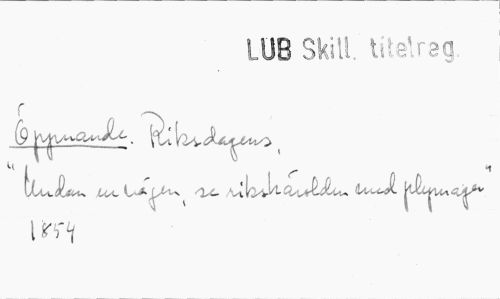 LUB Skill. titelreg.
Öppnande. Riksdagens,
"Undan ur vägen, se rikshärolden med plymager"
1854